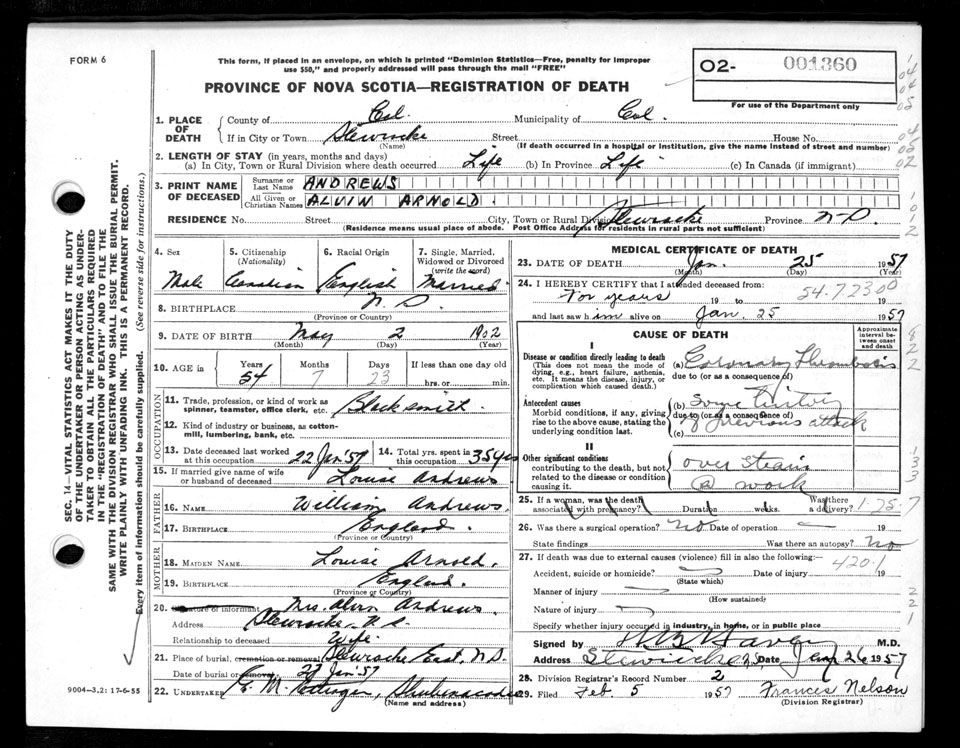 FORM 6
This form, if placed in an envelope, on which is printed "Dominion Statistics—Free, penalty for improper
use $50," and properly addressed will pass through the mail "FREE"
PROVINCE OF NOVA SCOTIA—REGISTRATION OF DEATH
O2- 001360
For use of the Department only
SEC. 14—VITAL STATISTICS ACT MAKES IT THE DUTY
OF THE UNDERTAKER OR PERSON ACTING AS UNDER-
TAKER TO OBTAIN ALL THE PARTICULARS REQUIRED
IN THE "REGISTRATION OF DEATH" AND TO FILE THE
SAME WITH THE DIVISION REGISTRAR WHO SHALL ISSUE THE BURIAL PERMIT.
WRITE PLAINLY WITH UNFADING INK. THIS IS A PERMANENT RECORD.
Every item of information should be carefully supplied. (See reverse side for instructions.)
1. PLACE OF DEATH County of Col. Municipality of Col.
If in City or Town Stewiacke Street House No.
(Name) (If death occurred in a hospital or institution, give the name instead of street and number)
2. LENGTH OF STAY (in years, months and days)
(a) In City, Town or Rural Division where death occurred Life (b) In Province Life (c) In Canada (if immigrant)
3. PRINT NAME OF DECEASED Surname or Last Name ANDREWS
All Given or Christian Names ALVIN ARNOLD.
RESIDENCE No. Street City, Town or Rural Division Stewiacke Province N.S.
(Residence means usual place of abode. Post Office Address for residents in rural parts not sufficient)
4. Sex 5. Citizenship (Nationality) 6. Racial Origin 7. Single, Married, Widowed or Divorced (write the word)
Male Canadian English Married.
8. BIRTHPLACE N.S.
(Province or Country)
9. DATE OF BIRTH May 2 1902
(Month) (Day) (Year)
10. AGE in Years Months Days If less than one day old
54 7 23 hrs. or min.
OCCUPATION
11. Trade, profession, or kind of work as
spinner, teamster, office clerk, etc. Blacksmith.
12. Kind of industry or business, as cotton-
mill, lumbering, bank, etc.
13. Date deceased last worked at this occupation 22 Jan '57 14. Total yrs. spent in this occupation 35 yrs
15. If married give name of wife
or husband of deceased Louise Andrews
FATHER
16. NAME William Andrews.
17. BIRTHPLACE England.
(Province or Country)
MOTHER
18. MAIDEN NAME Louise Arnold.
19. BIRTHPLACE England.
(Province or Country)
20. Signature of informant Mrs. Alvin Andrews.
Address Stewiacke, N.S.
Relationship to deceased Wife.
21. Place of burial, cremation or removal Stewiacke East, N.S.
Date of burial or removal 27 Jan '57
22. UNDERTAKER Shubenacadie
(Name and address)
9004—3.2: 17-6-55
MEDICAL CERTIFICATE OF DEATH
23. DATE OF DEATH Jan. 25 1957
(Month) (Day) (Year)
24. I HEREBY CERTIFY that I attended deceased from:
For years 19 to 19
54-72300
and last saw him alive on Jan. 25 1957
CAUSE OF DEATH
Approximate interval between onset and death
I
Disease or condition directly leading to death
(This does not mean the mode of
dying, e.g., heart failure, asthenia,
etc. It means the disease, injury, or
complication which caused death.)
(a) Coronary Thrombosis
due to (or as a consequence of)
Antecedent causes
Morbid conditions, if any, giving
rise to the above cause, stating the
underlying condition last.
(b) Some
due to (or as a consequence of)
(c) of previous attack
II
Other significant conditions
contributing to the death, but not
related to the disease or condition
causing it.
over strain
@ work
25. If a woman, was the death Was there
associated with pregnancy? Duration weeks. a delivery?
1-25-7
26. Was there a surgical operation? No Date of operation 19
State findings Was there an autopsy? No
27. If death was due to external causes (violence) fill in also the following:—
420.1
Accident, suicide or homicide? Date of injury 19
(State which)
Manner of injury
(How sustained)
Nature of injury
Specify whether injury occurred in industry, in home, or in public place
Signed by M.D.
Address Stewiacke N.S. Date Jan 26 1957
28. Division Registrar's Record Number 2
29. Filed Feb. 5 1957 Frances Nelson
(Division Registrar)